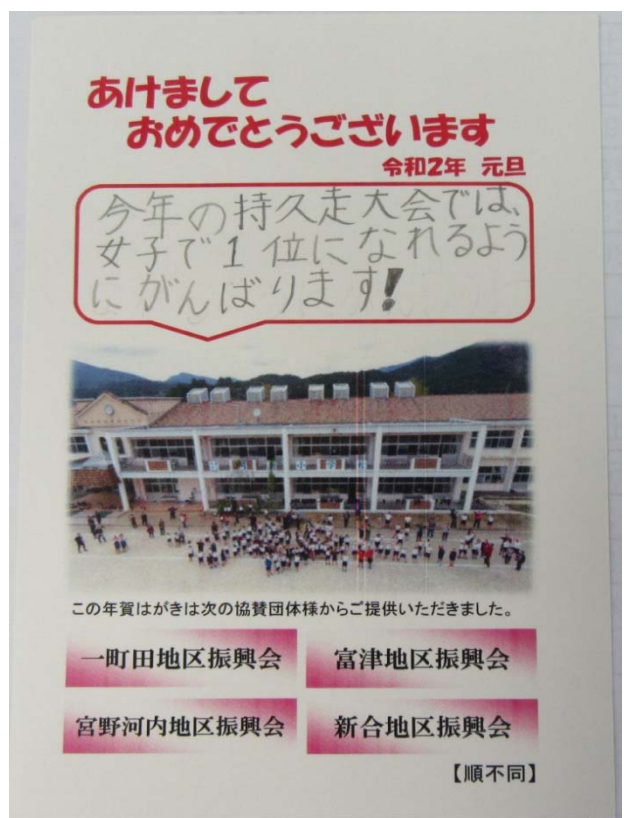 あけまして
おめでとうございます
令和2年 元旦
今年の持久走大会では、
女子で1位になれるよう
にがんばります!
この年賀はがきは次の協賛団体様からご提供いただきました。
一町田地区振興会
富津地区振興会
宮野河内地区振興会
新合地区振興会
【順不同】